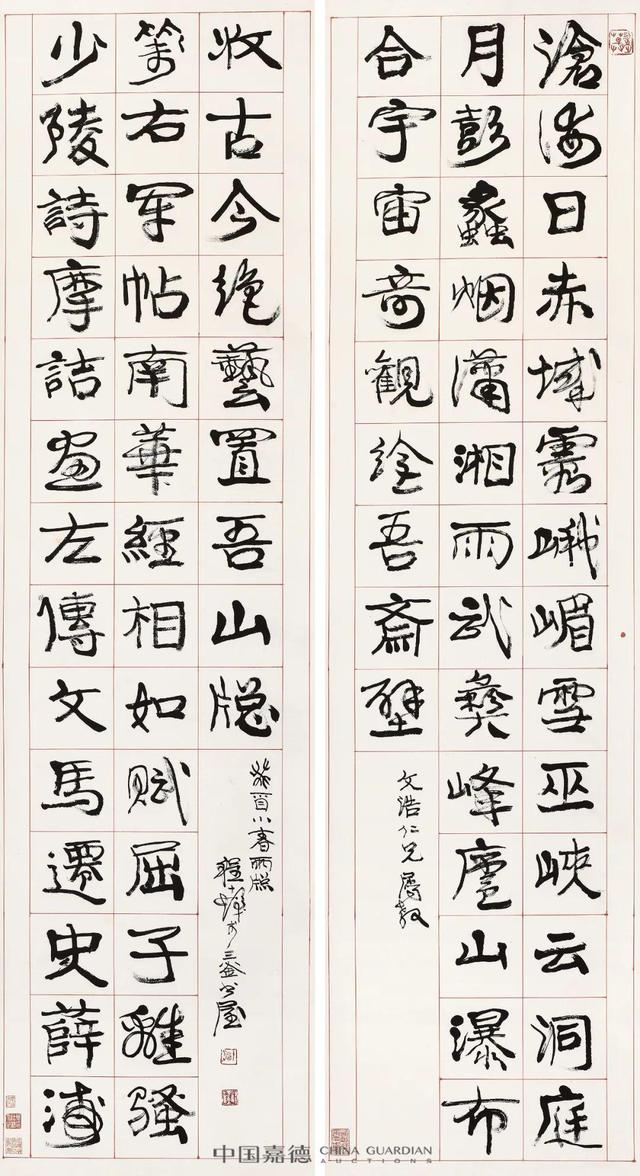 滄海日赤城霞峨嵋雪巫峽云洞庭
月彭蠡烟瀟湘雨武彝峰廬山瀑布
合宇宙奇觀繪吾齋壁
文浩仁兄屬教
少陵詩摩詰畫左傳文馬遷史薛濤
箋右軍帖南華經相如賦屈子離騷
收古今絕藝置吾山牕
小春雨牕
程十髮於三釜書屋
中国嘉德 CHINA GUARDIAN
AUCTIONS